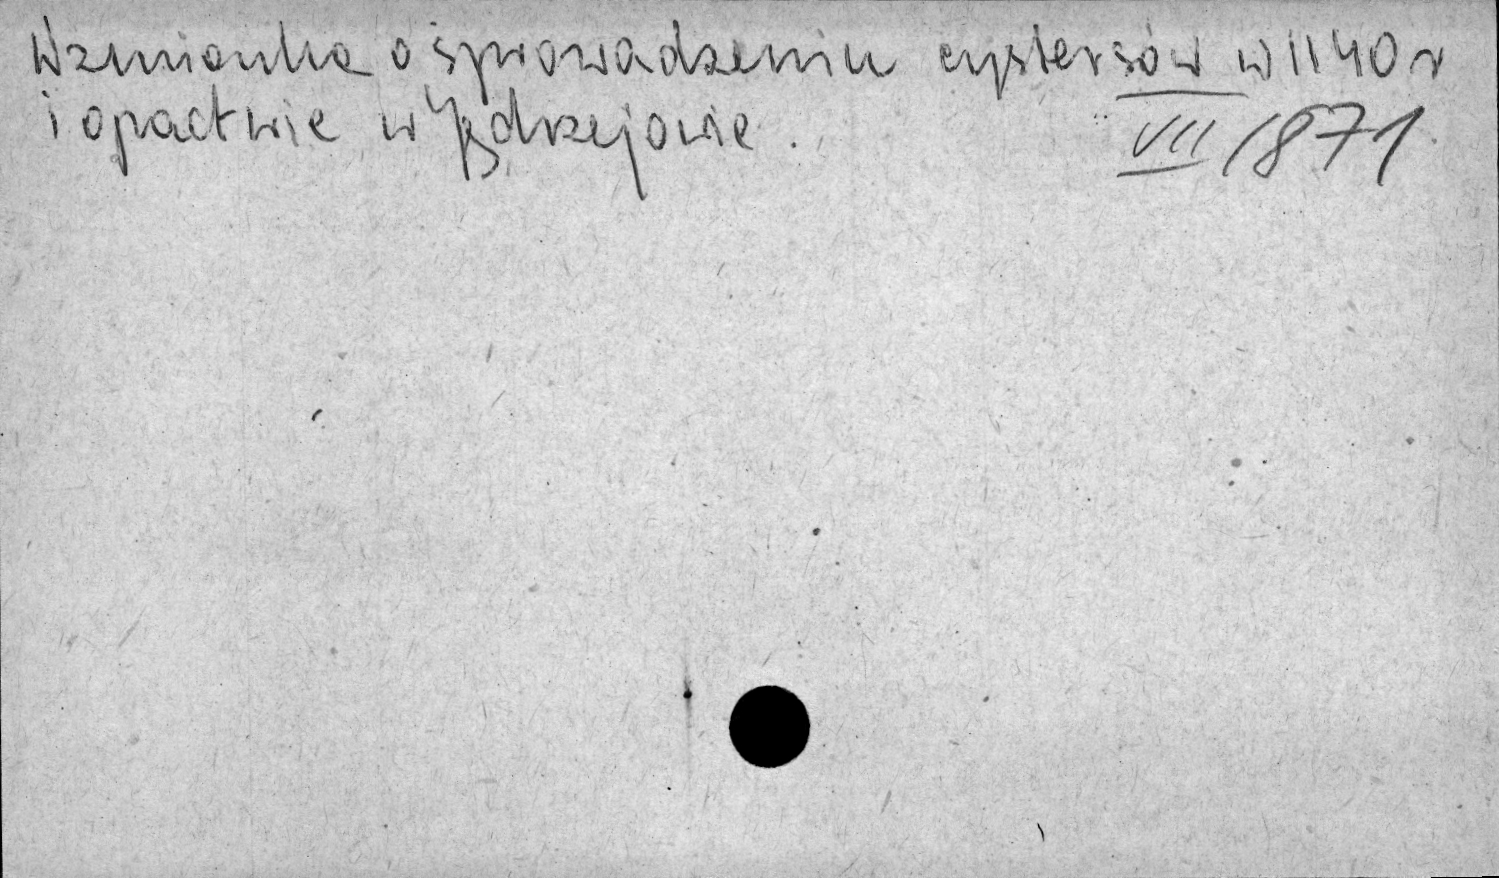 Wzmianka o sprowadzeniu cystersów w 1140 r
i opactwie w Jędrzejowie.
VII/871